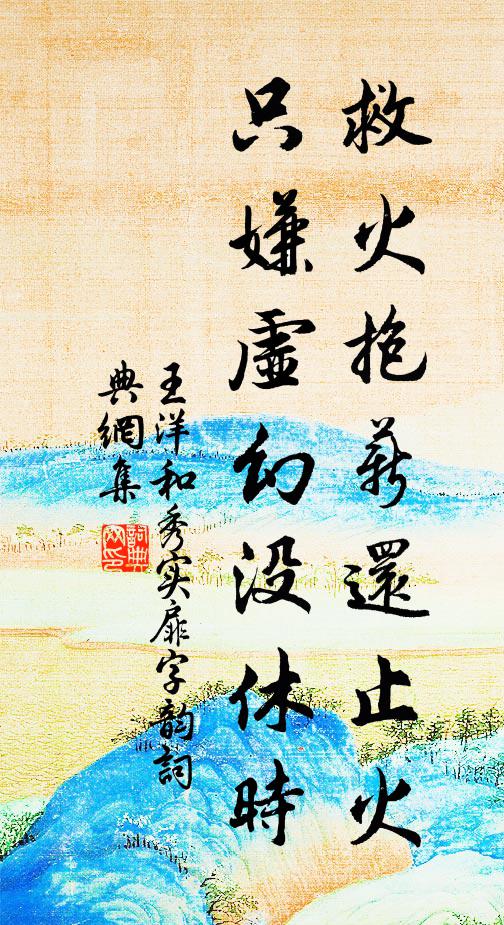 救火抱薪還止火
只嫌虛幻没休時
王洋和秀实扉字韵詞
典網集
詞典